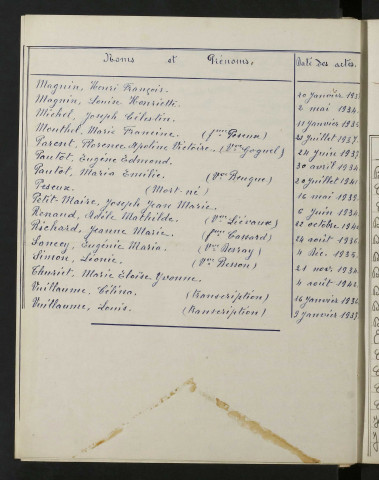 Noms et Prénoms. Date des actes.
Magnin, Henri François. 10 Janvier
Magnin, Louise Henriette. 2 mai 1934.
Michel, Joseph Célestin. 11 Janvier
Monthel, Marie Francine. (fme Peseux) 28 Juillet 1937.
Parent, Florence Apoline Victoire. (Vve Goguel) 24 Juin
Pautot, Eugène Edmond. 30 avril 1934
Pautot, Maria Emilie. (Vve Rougue) 20 Juillet 1941
Peseux (Mort né) 16 mai
Petit-Maire, Joseph Jean Marie. 6 Juin 1934
Renaud, Adèle Mathilde. (Vve Liévaux) 22 octobre 1940
Richard, Jeanne Marie. (fme Cassard) 24 août
Sancey, Eugénie Maria. (Vve) 4 Déc. 1935
Simon, Léonie. (Vve Renon) 21 nov. 1934
Thuriet, Marie Eloïse Yvonne. 4 août 1942
Vuillaume, Célina. (transcription) 16 Janvier
Vuillaume, Louis. (transcription) 9 Janvier 1937